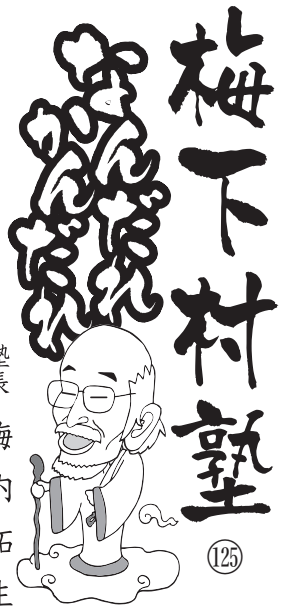 梅下村塾
125
なんだれ
かんだれ
塾長 梅内拓生